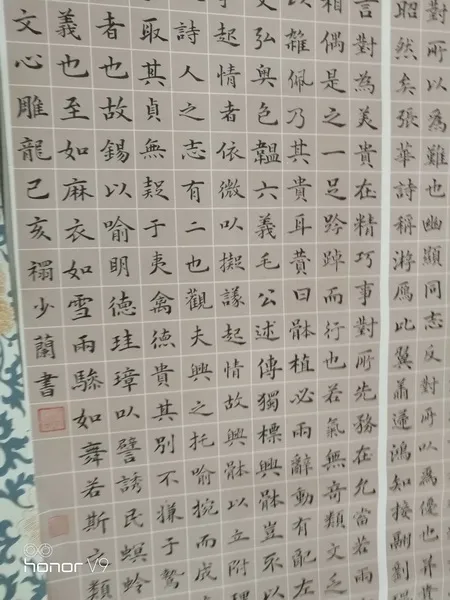 對所以為難也幽顯同志反對所以為優也并貴
昭然矣張華詩稱游鴈比翼鴻知接翮劉
言對為美貴在精巧事對所先務在允當若兩
相偶是之一足趻踔而行也若氣無奇類文乏
以雜佩乃其貴耳贊曰骵植必兩辭動有配左
弘奧包韞六義毛公述傳獨標興骵豈不以
于起情者依微以擬議起情故興骵以立附理
詩人之志有二也觀夫興之托喻婉而成
取其貞無疑于夷禽德貴其別不嫌于鷙
者也故錫以喻明德珪璋以譬誘民螟蛉
義也至如麻衣如雪兩驂如舞若斯之類
文心雕龍己亥禤少蘭書
honor V9